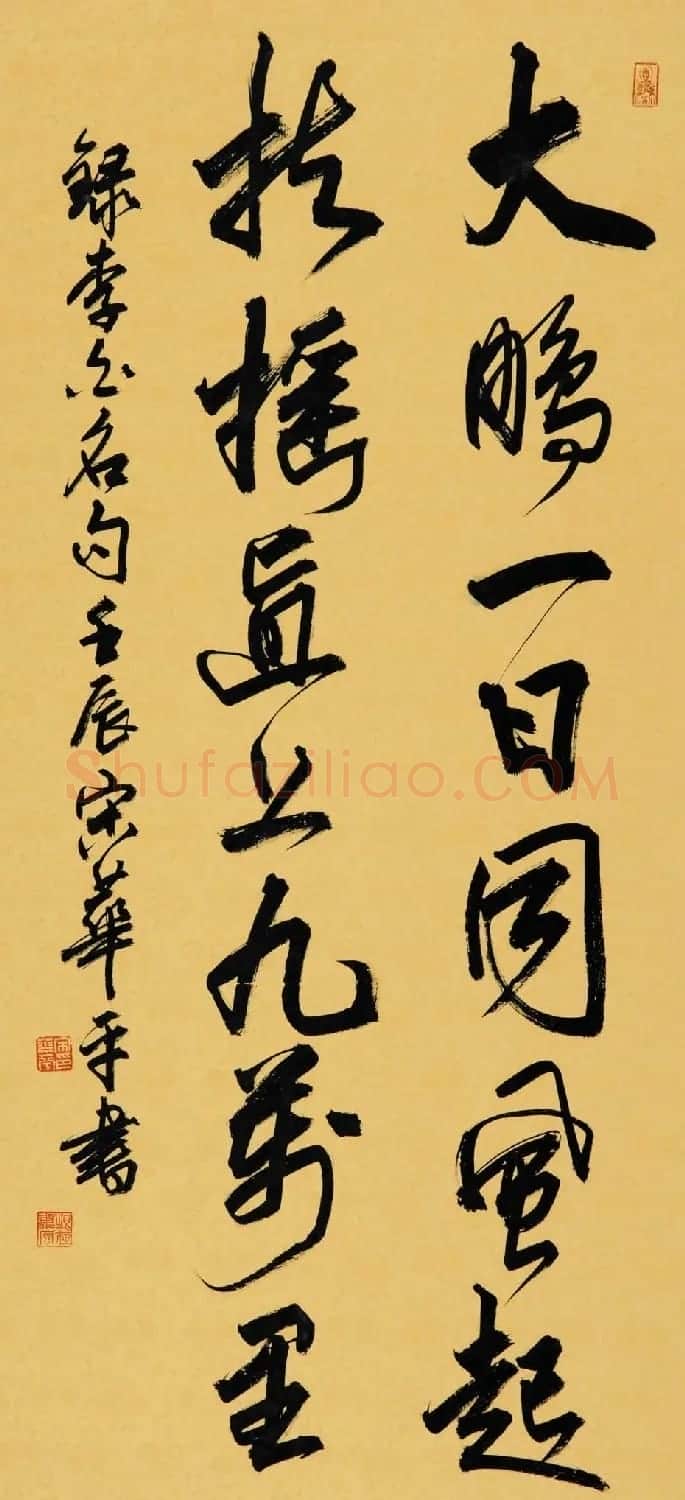 大鹏一日因风起
扶摇直上九万里
録李白名句壬辰宋華平書
Shufaziliao.COM